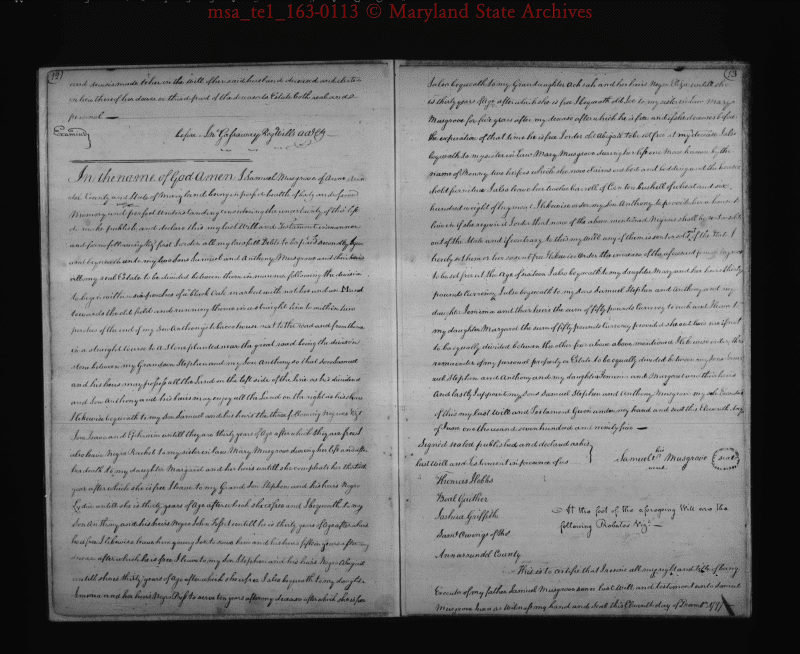 msa_te1_163-0113 © Maryland State Archives
and devise made to her in the will of her said husband deceased and elects
in lieu thereof her dower or third part of the deceaseds Estate both real and
personal
Examined
before Jn° Gassaway Reg Wills
In the name of God Amen I Samuel Musgrove of Anne Arun
del County and State of Maryland being in perfect health of body and sound
Memory and perfect understanding considering the uncertainty of this life
do make publish and declare this my last Will and Testament in manner
and form following Viz first I order all my lawful Debts to be paid secondly I give
and bequeath unto my two Sons Samuel and Anthony Musgrove and their heirs
all my real Estate to be divided between them in manner following the division
to begin within six perches of a black Oak marked with notches and run
towards the old field and running thence in a straight line to within two
perches of the end of my Son Anthony's tobacco house next to the road and from thence
in a straight course to a Stone planted near the great road being the division
stone between my Grandson Stephen and my Son Anthony so that Son Samuel
and his heirs may possess all the Land on the left side of the line as his dividend
and Son Anthony and his heirs may enjoy all the Land on the right as his
I likewise bequeath to my Son Samuel and his heirs the three following Negroes Viz
Isaac and Ephraim untill they are thirty years of Age after which they are free I
also leave Negro Rachel to my sister in law Mary Musgrove during her life and after
her death to my daughter Margaret and her heirs untill she compleats her thirtieth
year after which she is free I leave to my Grand Son Stephen and his heirs Negro
Lydia untill she is thirty years of Age after which she is free and I bequeath to my
Son Anthony and his heirs Negro John untill he is thirty years of Age after which
he is free I likewise leave him young Joe to him and his heirs fifteen years after my
decease after which he is free I leave to my Son Stephen and his heirs Negro Abigail
untill she is thirty years of Age after which she is free I also bequeath to my daughter
Jemima and her heirs Negro to serve ten years after my decease after which she is free
I also bequeath to my Grandaughter Achsah and her heirs Negro untill she
is thirty years of Age after which she is free I bequeath old Joe to my sister in law Mary
Musgrove for five years after my decease after which he is free and if she deceases before
the expiration of that time he is free I order old Abigail to be set free at my decease I also
bequeath to my sister in law Mary Musgrove during her life one Mare known by the
name of
hold furniture I also leave her twelve barrells of Corn ten bushells of wheat and six
hundred weight of hog meat I likewise order my Son Anthony to provide her a house to
live in if she require it I order that none of the above mentioned Negroes shall be sold
out of the State and if contrary to this my will any of them is sent or sold out of the State I
to be set free at the Age of sixteen I also bequeath to my daughter Mary and her heirs thirty
pounds Currency I also bequeath to my Sons Samuel Stephen and Anthony and my
daughter Jemima and their heirs the sum of fifty pounds Currency to each and I leave to
my daughter Margaret the sum of fifty pounds Currency provided she out live me if not
to be equally divided between the other four above mentioned I likewise order the
remainder of my personal property or Estate to be equally divided between my Sons Sam
uel Stephen and Anthony and my daughters Jemima and Margaret and their heirs
And lastly I appoint my Sons Samuel Stephen and Anthony Musgrove my sole Executors
of this my last Will and Testament Given under my hand and seal this Eleventh day
of June one thousand seven hundred and ninety five
Signed sealed published and declared as his
last Will and Testament in presence of us
Samuel his mark Musgrove
seal
Thomas Hobbs
Beal Gaither
Joshua Griffith
Saml Owings of Thos
Annarundel County
At the foot of the aforegoing Will are the
following Probates Viz
This is to certify that I resign all my right and title of being
Executor of my father Samuel Musgroves son's last Will and testament unto Samuel
Musgrove Junr as witness my hand and Seal this Eleventh day of Decemr 1797